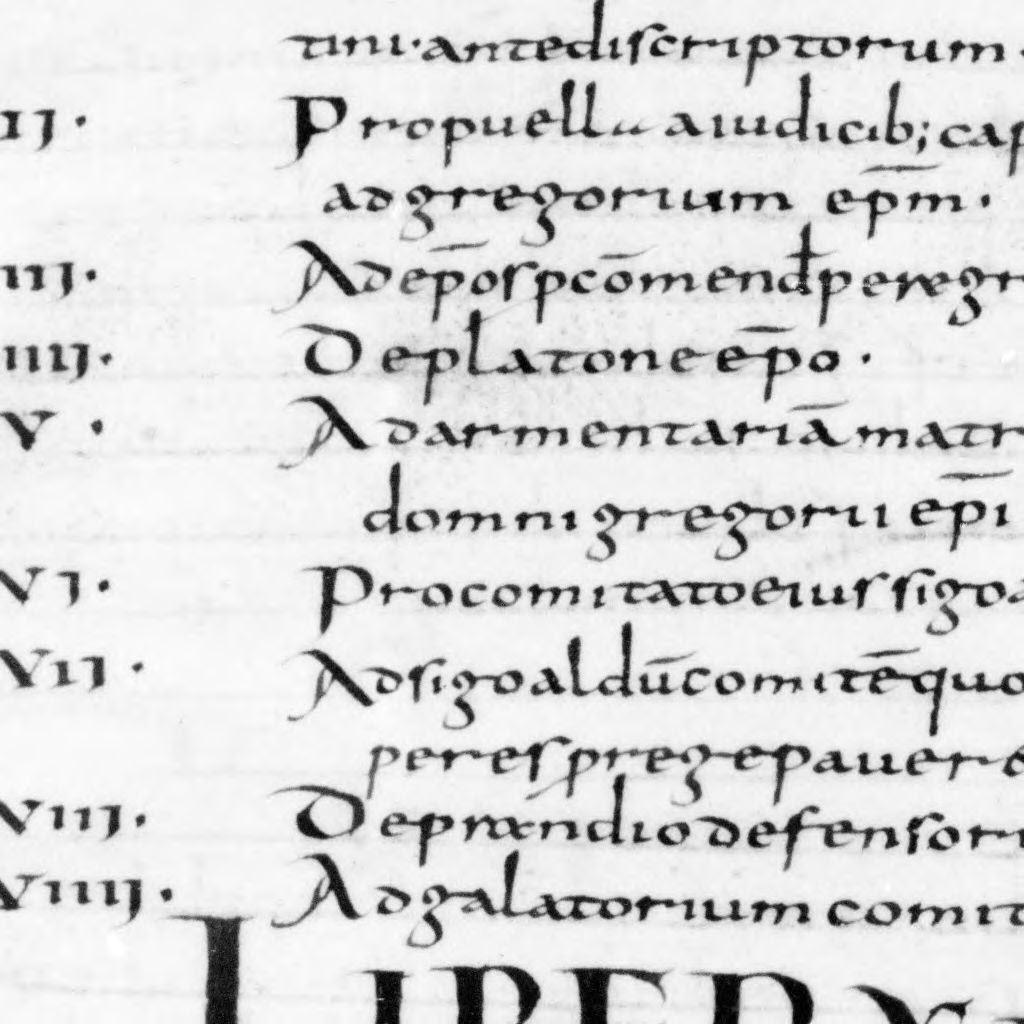 tini·antediscriptorum·
II· Propuella aiudicib;cap
adgregorium ep̄m·
III· Adep̄ospcōmendꝑeregr
IIII· Deplatone ep̄o·
V· Adarmentariā matr
domni gregorii ep̄i
VI· Procomitatoeius sigoa
VII· Adsigoaldū comitē quo
peres p rege pauere
VIII· Depraendiodefensori
VIIII· Adgalatorium comit
LIBER X